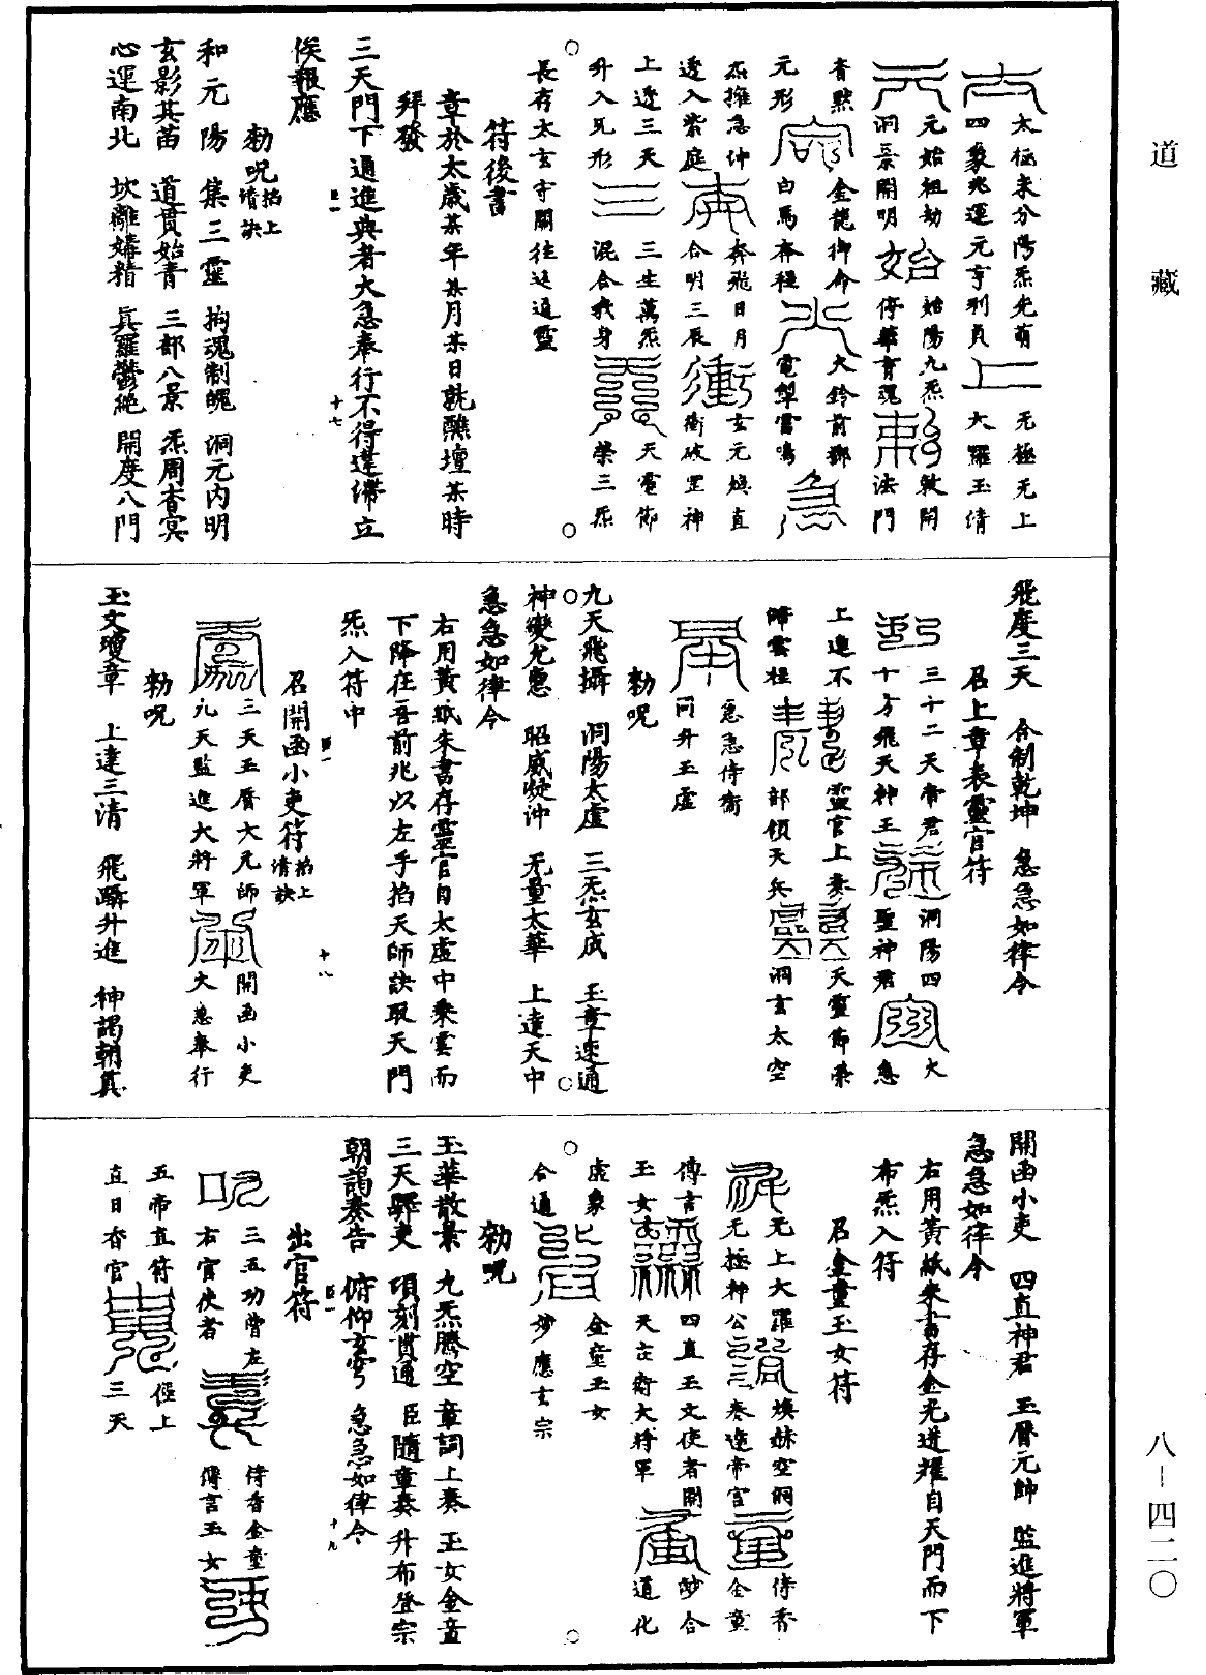 道藏
太極未分陽炁光萌
四象兆運元亨利貞
无極无上
大羅玉清
元始祖劫
洞景開明
始陽九炁
停華育魂
敕開
法門
杳默
元形
金龍御命
白馬奔程
火鈴前鄉
電掣雷鳴
急
炁擁急沖
透入紫庭
奔飛日月
合明三辰
衝
玄元煥直
衝破罡神
上透三天
升入旡形
三
三生萬炁
混合我身
天電節
榮三炁
長存太玄守關往返通靈
符後書
章於太歲某年某月某日就醮壇某時
拜發
三天門下通進典者火急奉行不得違滯立
俟報應
勑呪掐上清訣
和元陽 集三靈 拘魂制魄 洞元内明
玄影其苗 道貫始青 三部八景 炁周杳冥
心運南北 坎離媾精 真羅鬱絶 開度八門
十七
飛度三天 合制乾坤 急急如律令
召上章表靈官符
三十二天帝君
十方飛天神王
洞陽四
聖神君
火
急
上進不
歸雲程
靈官上奏
部領天兵
天靈節榮
洞玄太空
急急侍衛
同升玉虛
勑呪
九天飛攝 洞陽太虛 三炁玄成 玉章速通
神變尤惠 昭威凝沖 旡量太華 上達天中
急急如律令
右用黃紙朱書存靈官自太虛中乘雲而
下降在吾前兆以左手掐天師訣取天門
炁入符中
召開函小吏符掐上清訣
三天玉曆大元帥
九天監進大將軍
開函小吏
火急奉行
勑呪
玉文瓊章 上達三清 飛躡升進 神謁朝真
十八
開函小吏 四直神君 玉曆元帥 監進將軍
急急如律令
右用黃紙朱書存金光迸耀自天門而下
布炁入符
召金童玉女符
无上大羅
无極神公
煥赫空洞
奏達帝宫
侍香
金童
傳言
玉女
四直玉文使者開
天立衛大將軍
妙合
道化
虛象
合通
金童玉女
妙應玄宗
勑呪
玉華散景 九炁騰空 章詞上奏 玉女金童
三天驛吏 頃刻貫通 臣隨章奏 升布登宗
朝謁奏告 俯仰玄穹 急急如律令
出官符
三五功曹左
右官使者
侍香金童
傳言玉女
五帝直符
直日杳官
徑上
三天
十九
八－四二〇